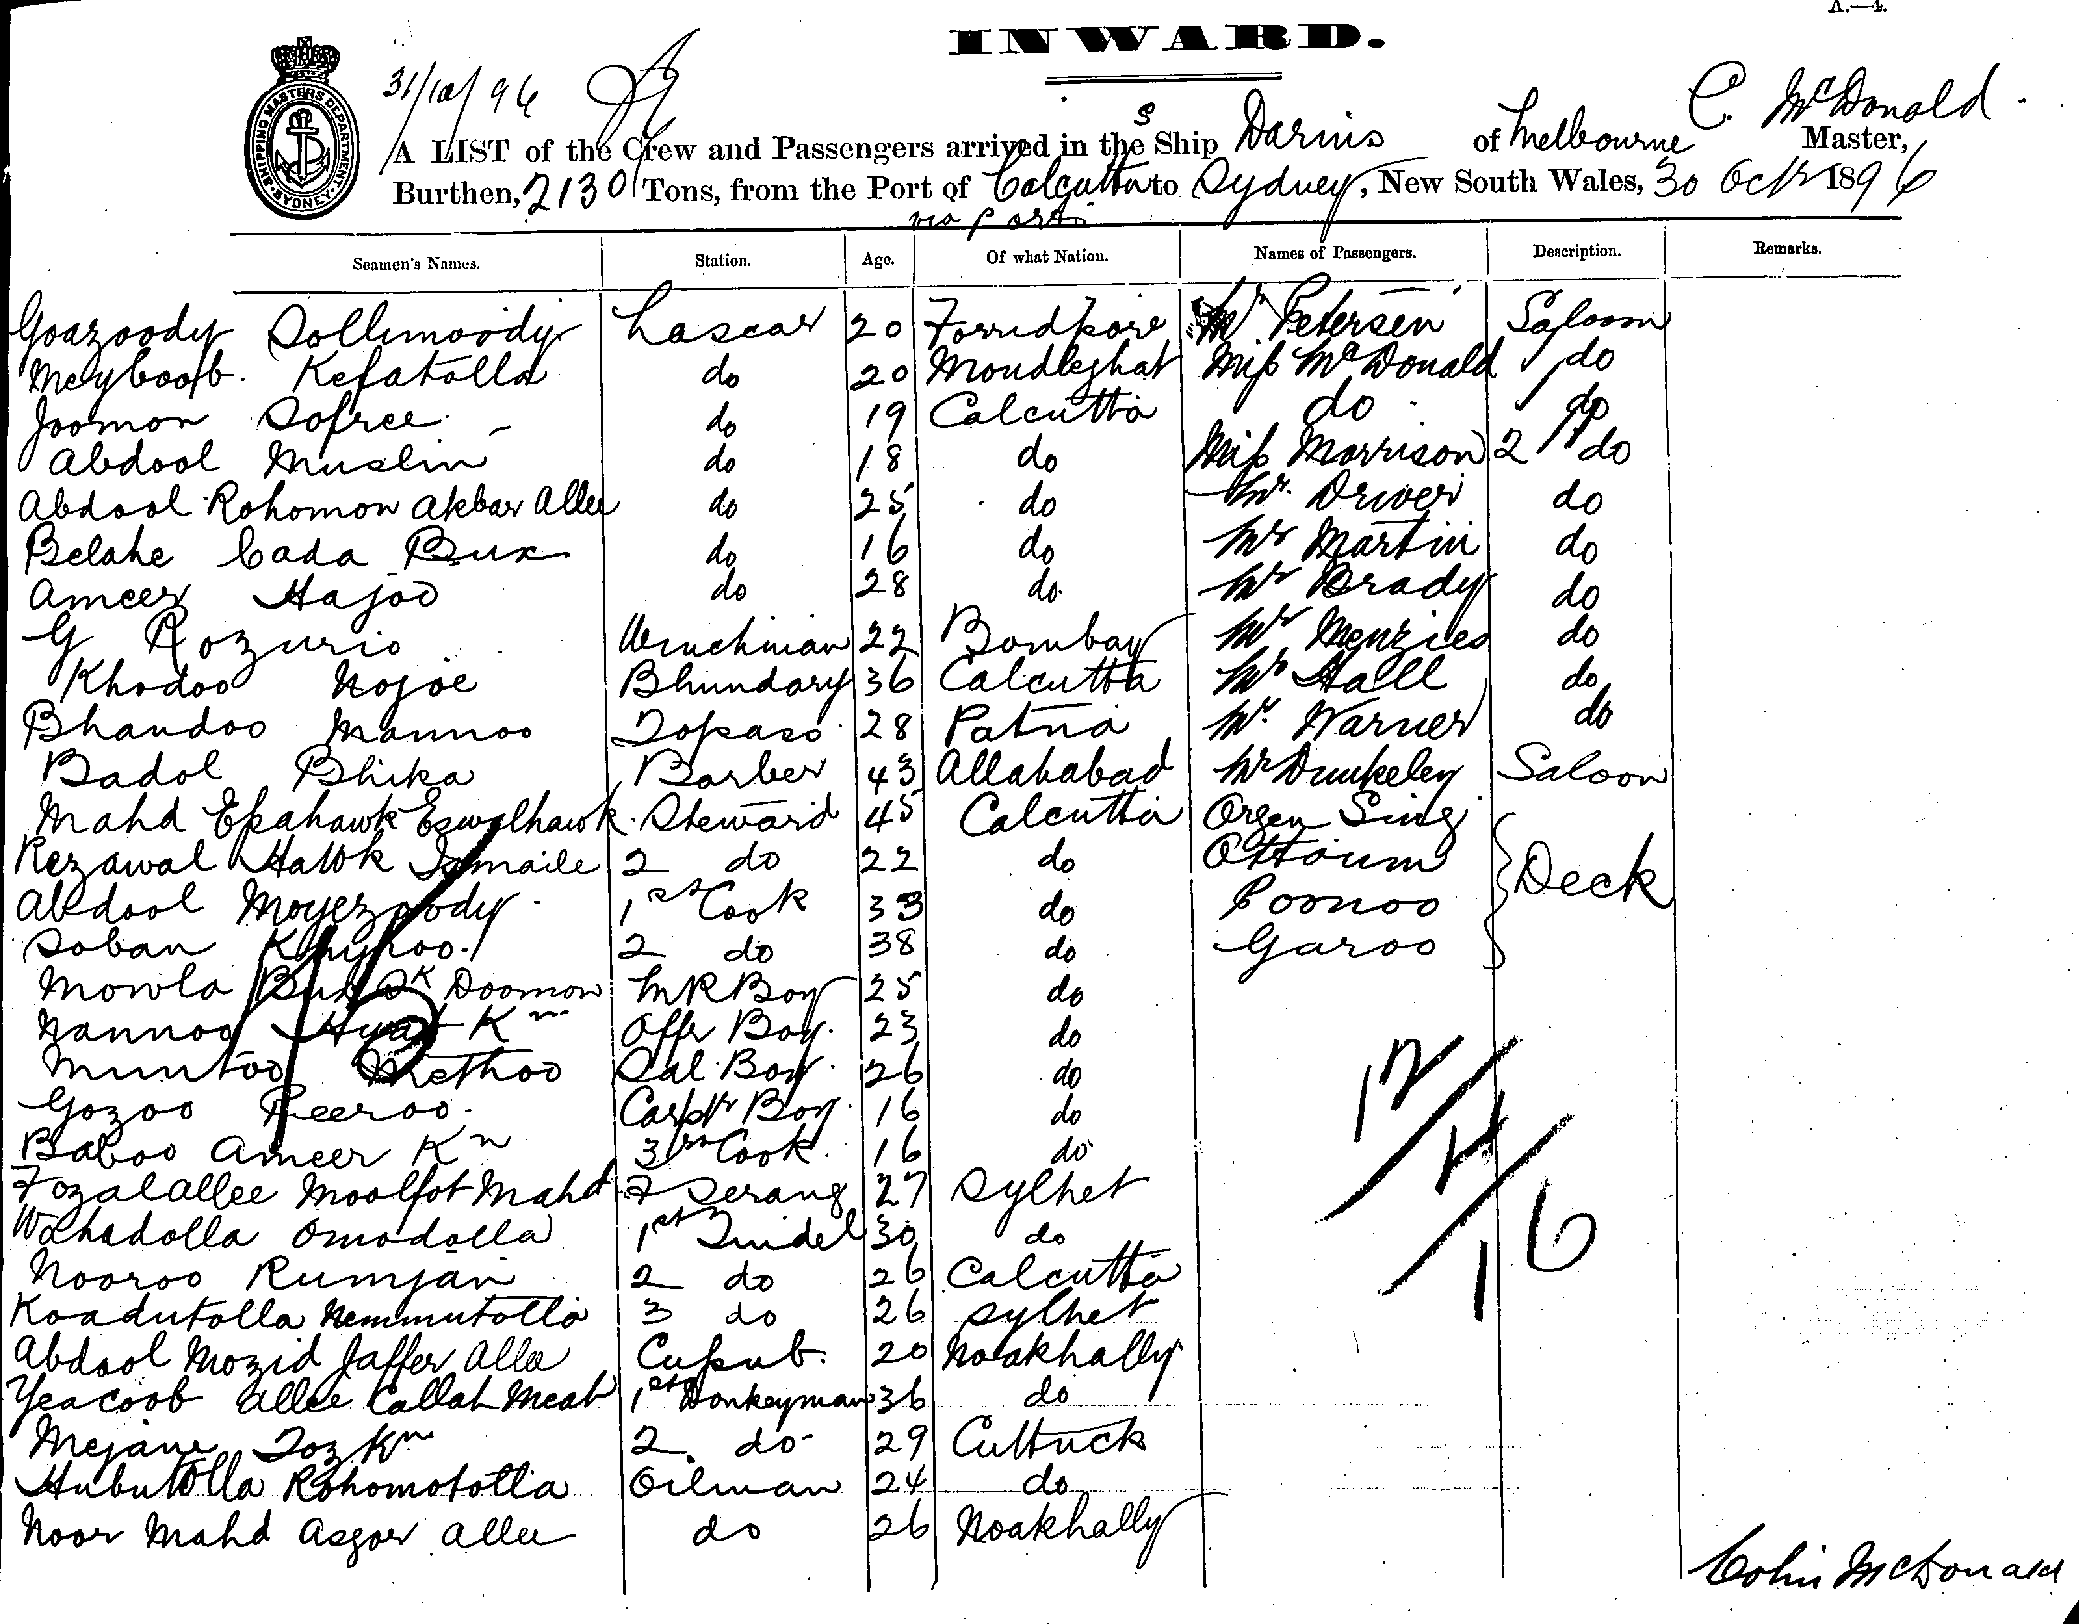 A.—4.
INWARD.
31/10/96
SHIPPING MASTERS DEPARTMENT SYDNEY
C. McDonald
A LIST of the Crew and Passengers arrived in the S Ship Darius of Melbourne Master,
Burthen, 2130 Tons, from the Port of Calcutta to Sydney, New South Wales, 30 Octr 1896
via ports
Seamen's Names. Station. Age. Of what Nation. Names of Passengers. Description. Remarks.
Goazoody Sollimoody Lascar 20 Forridpore Mr Petersen Saloon
Meyboob Kefatolla do 20 Moudleghat Miss McDonald do
Joomon Sofree do 19 Calcutta do do
Abdool Muslin do 18 do Miss Morrison 2 do
Abdool Rohomon Akbar Allee do 25 do Mr. Driver do
Belahe Cada Bux do 16 do Mr Martin do
Ameer Hajoo do 28 do Mr Brady do
G Rozurio Winchman 22 Bombay Mr Menzies do
Khodoo Nojoe Bhundary 36 Calcutta Mr Hall do
Bhandoo Mannoo Topass 28 Patna Mr. Warner do
Badol Bhika Barber 43 Allahabad Mr Dunkeley Saloon
Mahd Ekahawk Eswalhawk Steward 45 Calcutta Orgen Sing
Rezawal Hawk Ismaile 2 do 22 do Ottoum Deck
Abdool Moyezoody 1st Cook 33 do Poonoo
Soban Khyroo. 2 do 38 do Garoo
Mowla Bux Sk Doomon MR Boy 25 do
Nannoo Hyat Kn Offr Boy. 23 do
Muntoo Methoo Sal. Boy. 26 do
Gozoo Peeroo. Carptr Boy. 16 do
Baboo Ameer Kn 3rd Cook. 16 do
Fozalallee Moolfot Mahd F Serang 27 Sylhet
Wahadolla Omodolla 1st Tindel 30 do
Nooroo Rumjan 2 do 26 Calcutta
Koadutolla Nemmutolla 3 do 26 Sylhet
Abdool Mozid Jaffer Alle Cussub. 20 Noakhally
Yeacoob Allee Callah Meah 1st Donkeyman 36 do
Mejane Toz Kn 2. do 29 Cuttuck
Hubutolla Rohomotolla Oilman 24 do
Noor Mahd Asgor Allee do 26 Noakhally
12/4/16
Colin McDonald